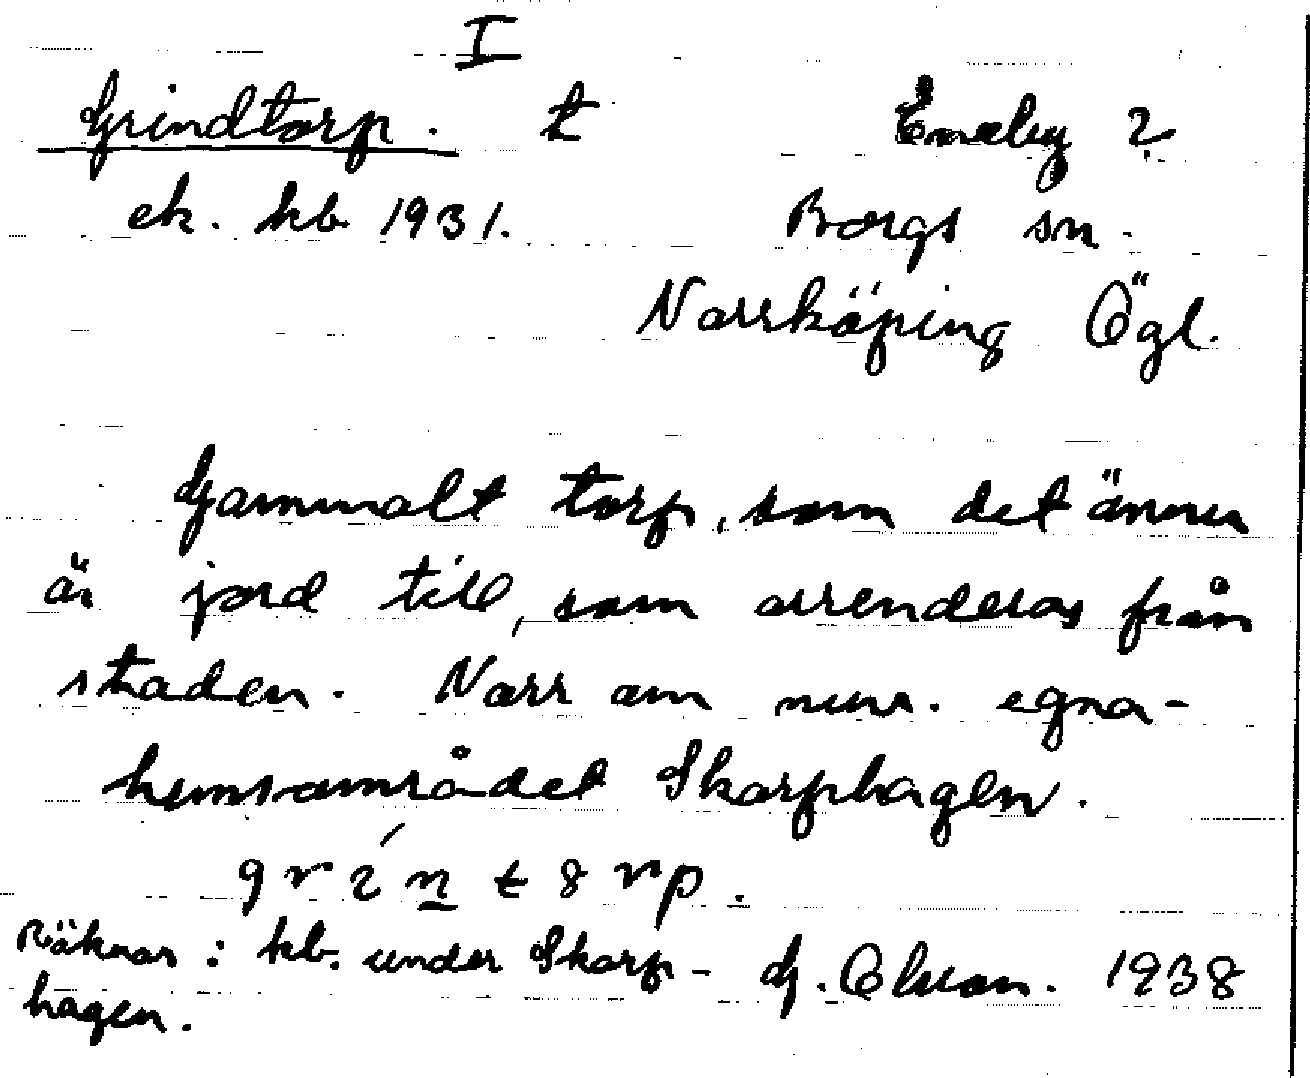 I
Grindtorp. t Eneby ?
ek. kb. 1931. Borgs sn.
Norrköping Ögl.
Gammalt torp, som det ännu
är jord till, som arrenderas från
staden. Norr om nuv. egna-
hemsområdet Skarphagen.
Räknas i kb. under Skarp- G. 1938
hagen.